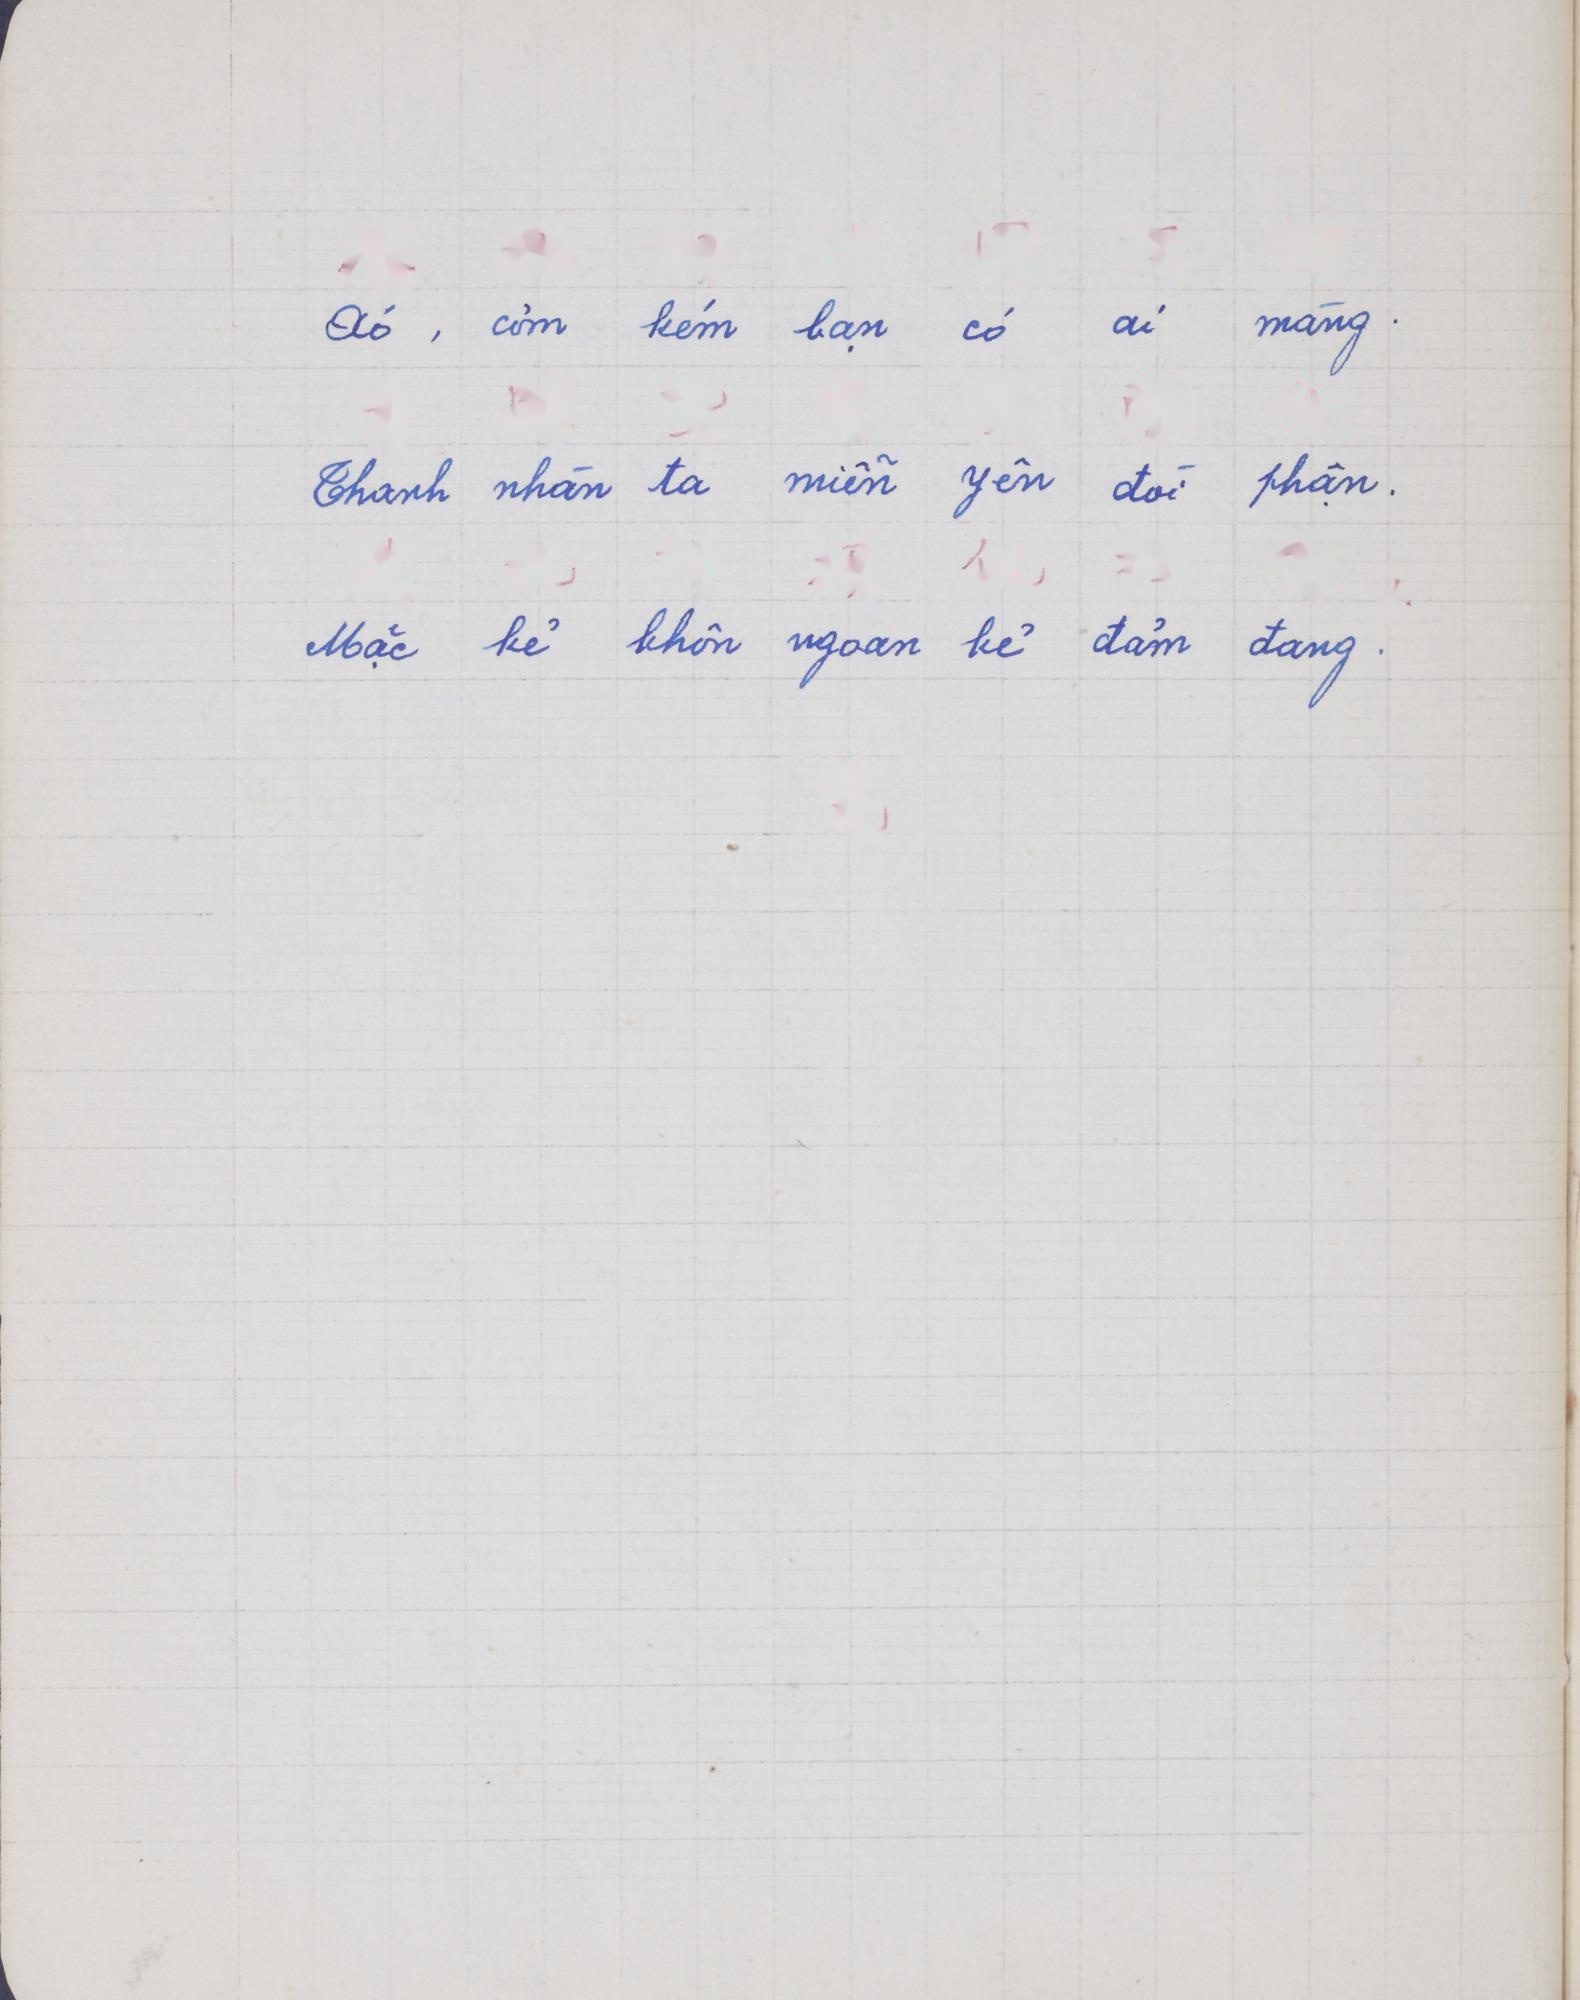 Áo, cơm kém bạn có ai màng.
Thanh nhàn ta miễn yên đòi phận.
Mặc kẻ khôn ngoan kẻ đảm đang.